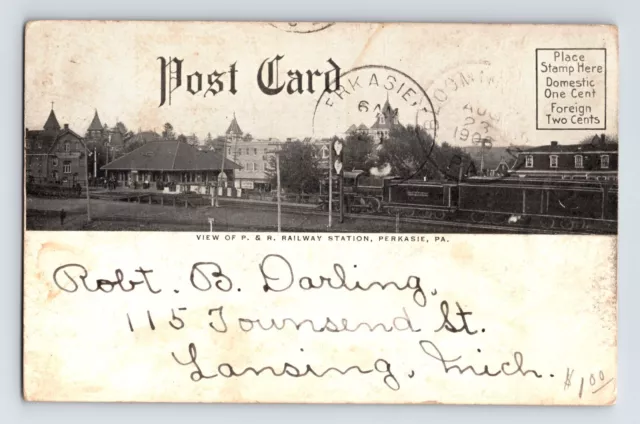 Post Card
Place
Stamp Here
Domestic
One Cent
Foreign
Two Cents
PERKASIE
6 A
AUG
23
VIEW OF P. & R. RAILWAY STATION, PERKASIE, PA.
Robt. B. Darling,
115 Townsend St.
Lansing, Mich.
$1.00